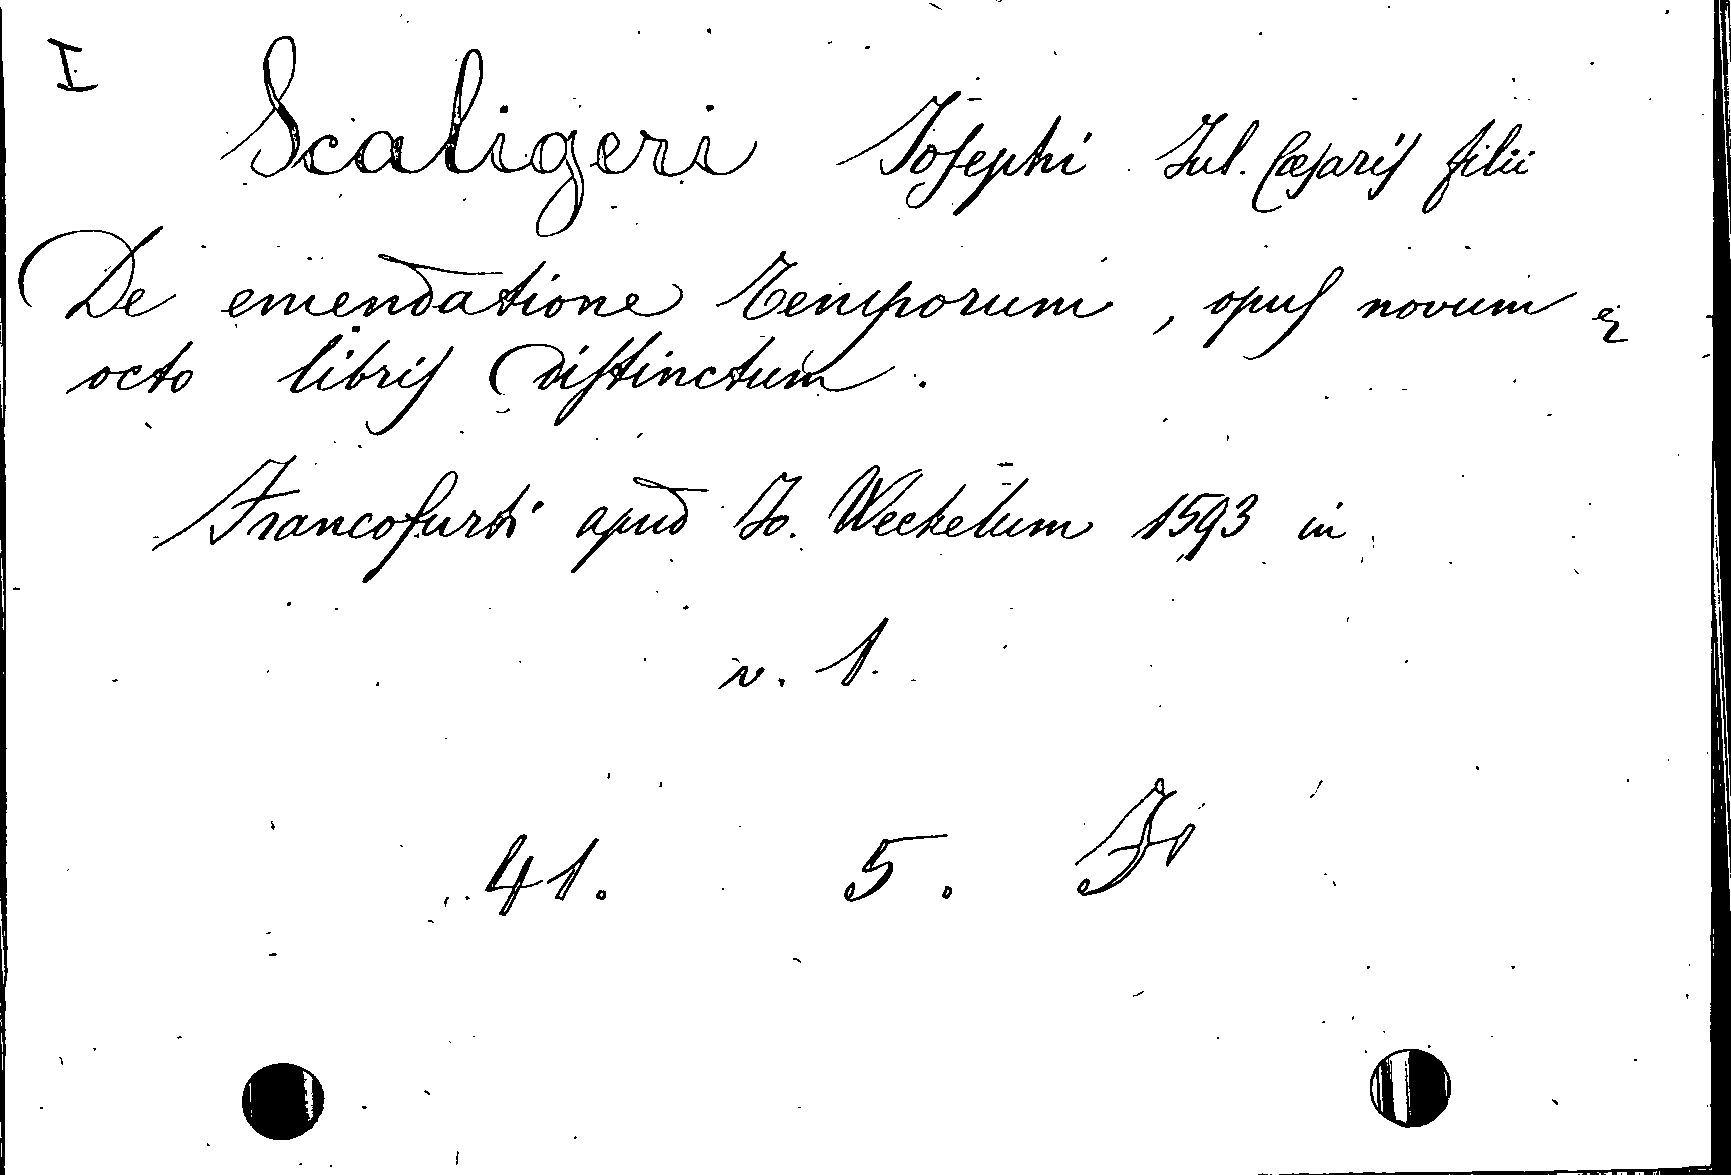 I
Scaligeri Josephi Jul. Cæsaris filii
De emendatione temporum, opus novum
octo libris distinctum.
Francofurti apud Jo. Weckelum 1593 in
v. 1.
41. 5. F